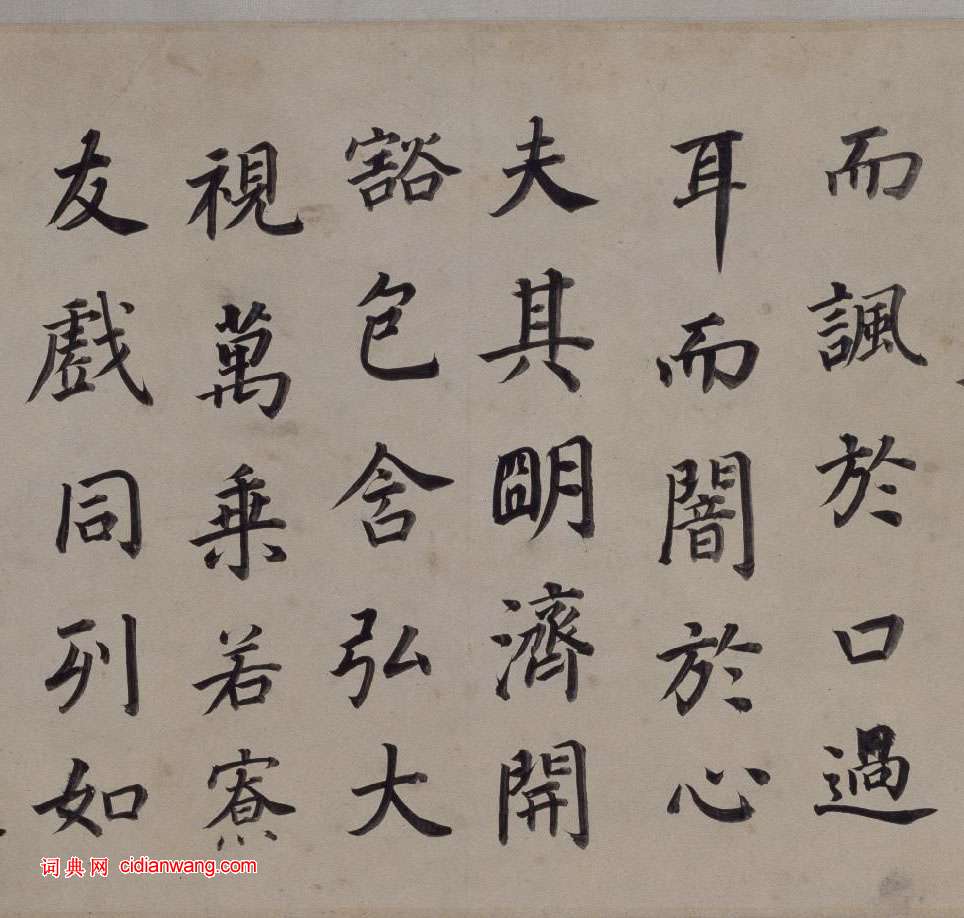 而諷於口過
耳而闇於心
夫其明濟開
豁包含弘大
視萬乗若寮
友戲同列如
词典网 cidianwang.com